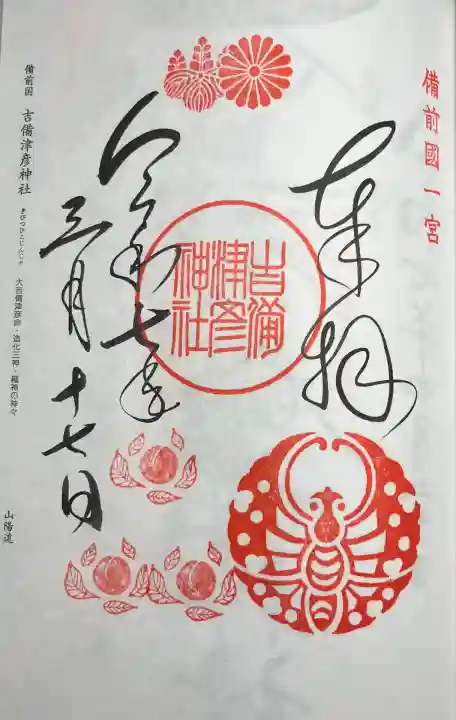 備前國一宮
奉拝
吉備
津彦
神社
令和七年
三月十七日
備前国 吉備津彦神社 きびつひこじんじゃ 大吉備津彦命・造化三神・龗神の神々
山陽道